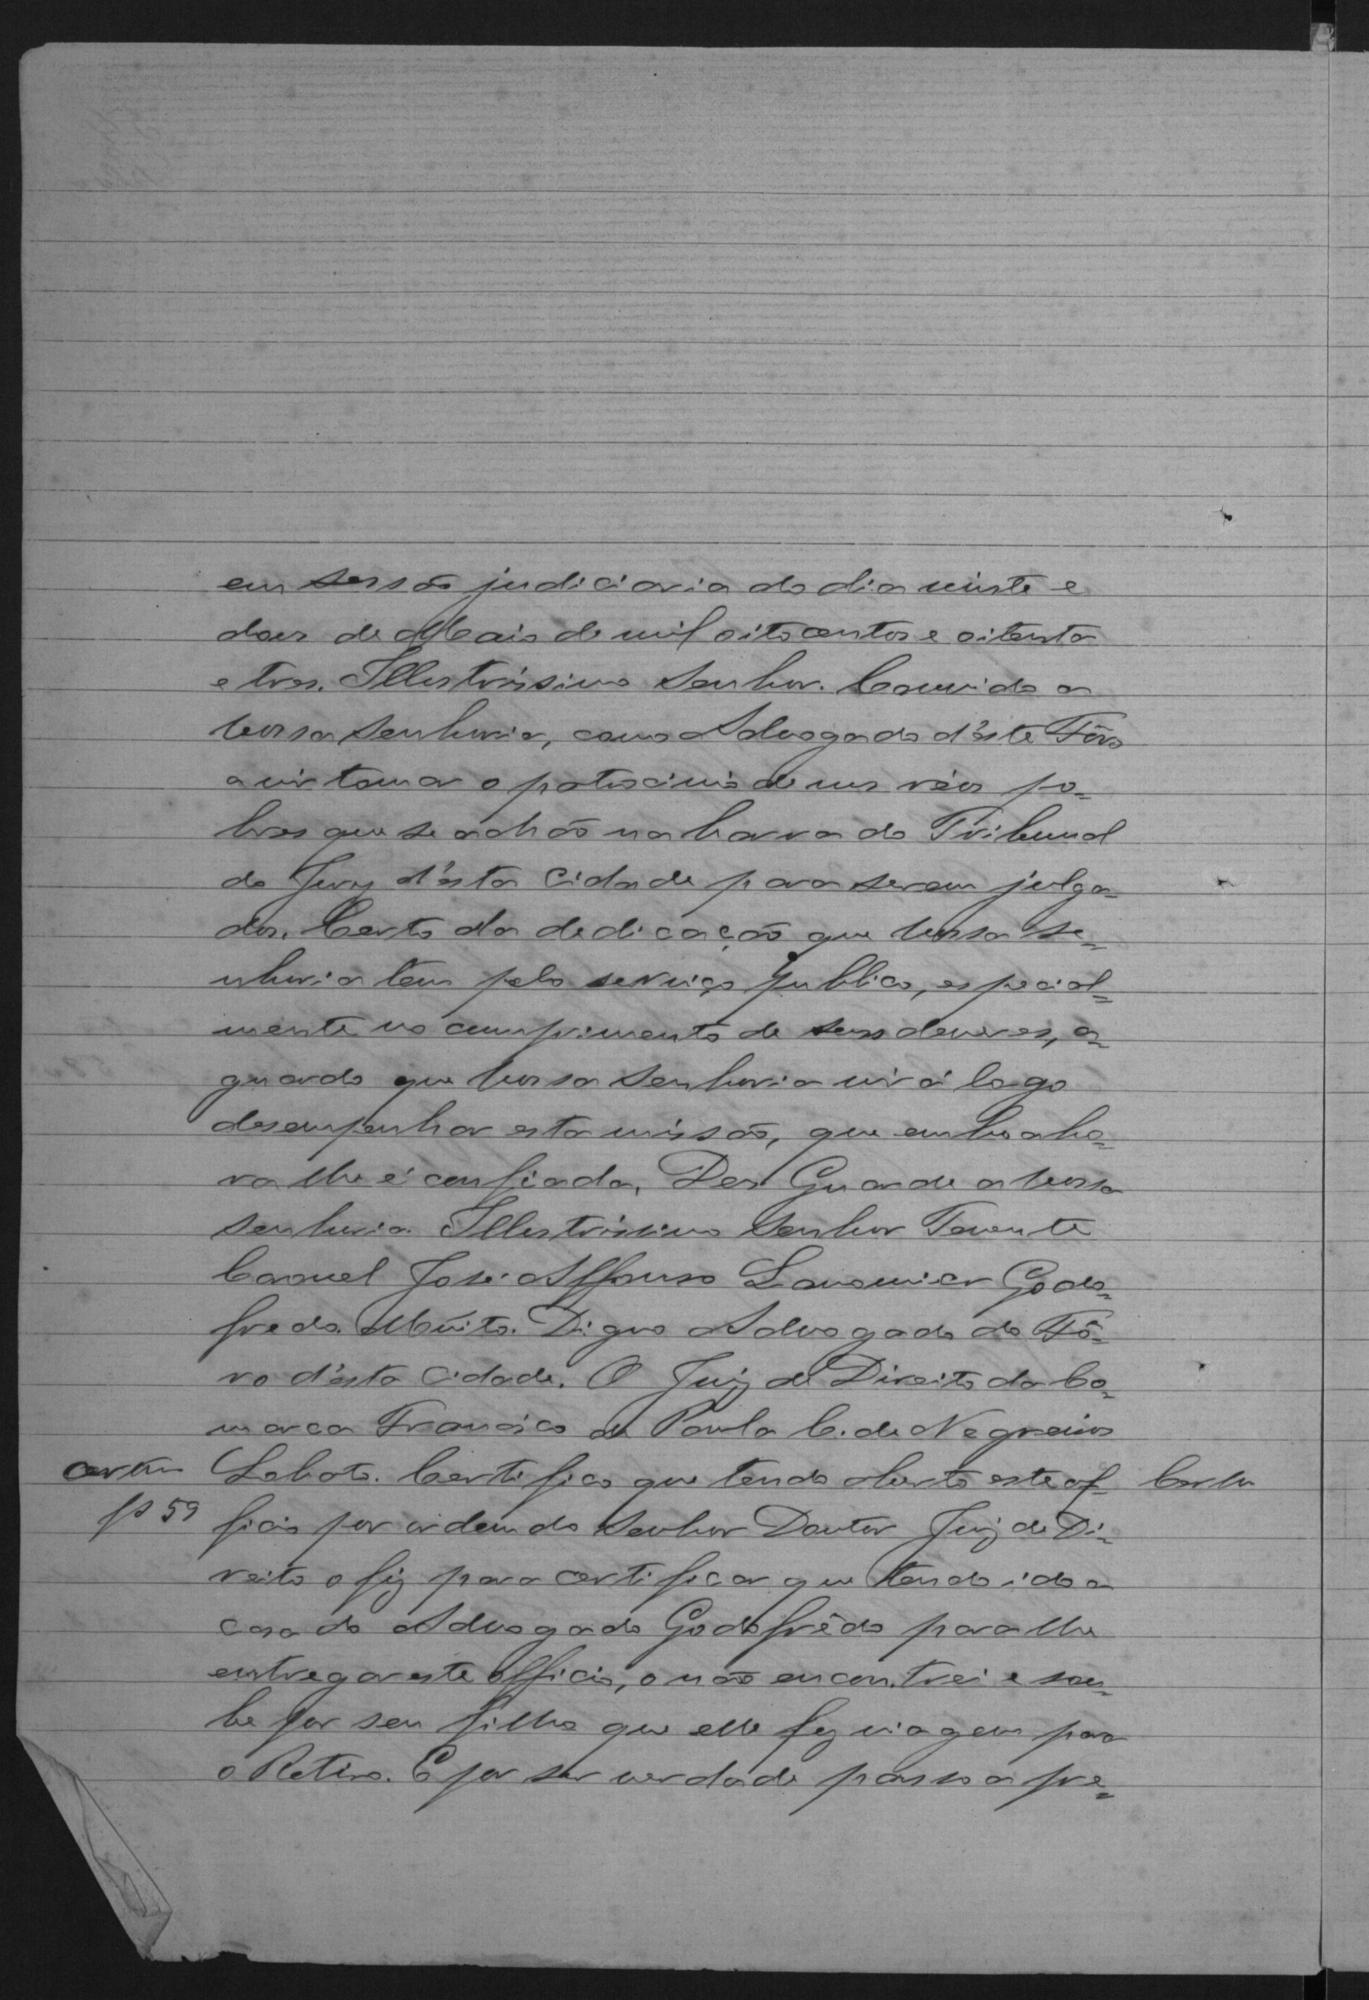 em sessão judiciaria do dia vinte e
dous de Maio de mil oito centos e oitenta
e tres. Illustrissimo Senhor. Convido a
Vossa Senhoria, como Advogado d'éste Fôro
a vir tomar o patrocinio de uns réos po=
bres que se achão na barra do Tribunal
do Jury d'ésta Cidade para serem julga=
dos. Certo da dedicação que Vossa Se=
nhoria tem pelo serviço publico, especial=
mente no cumprimento de seus deveres, a=
guardo que Vossa Senhoria virá logo
desempenhar esta missão, que em boa ho=
ra lhe é confiada. Deos Guarde a Vossa
Senhoria. Illustrissimo Senhor Tenente
Coronel José Affonso Godo=
fredo. Muito Digno Advogado do Fô=
ro d'ésta Cidade. O Juiz de Direito da Co=
marca Francisco de Paula C. de Negreiros
Lobato. Certifico que tendo aberto este of=
fº 59 ficio por ordem do Senhor Doutor Juiz de Di=
reito o fiz para certificar que tendo ido a
casa do Advogado Godofrêdo para lhe
entregar este officio, o não encontrei e sou=
be por seu filho que elle fez viagem para
o Retiro. E por ser verdade passo a pre=